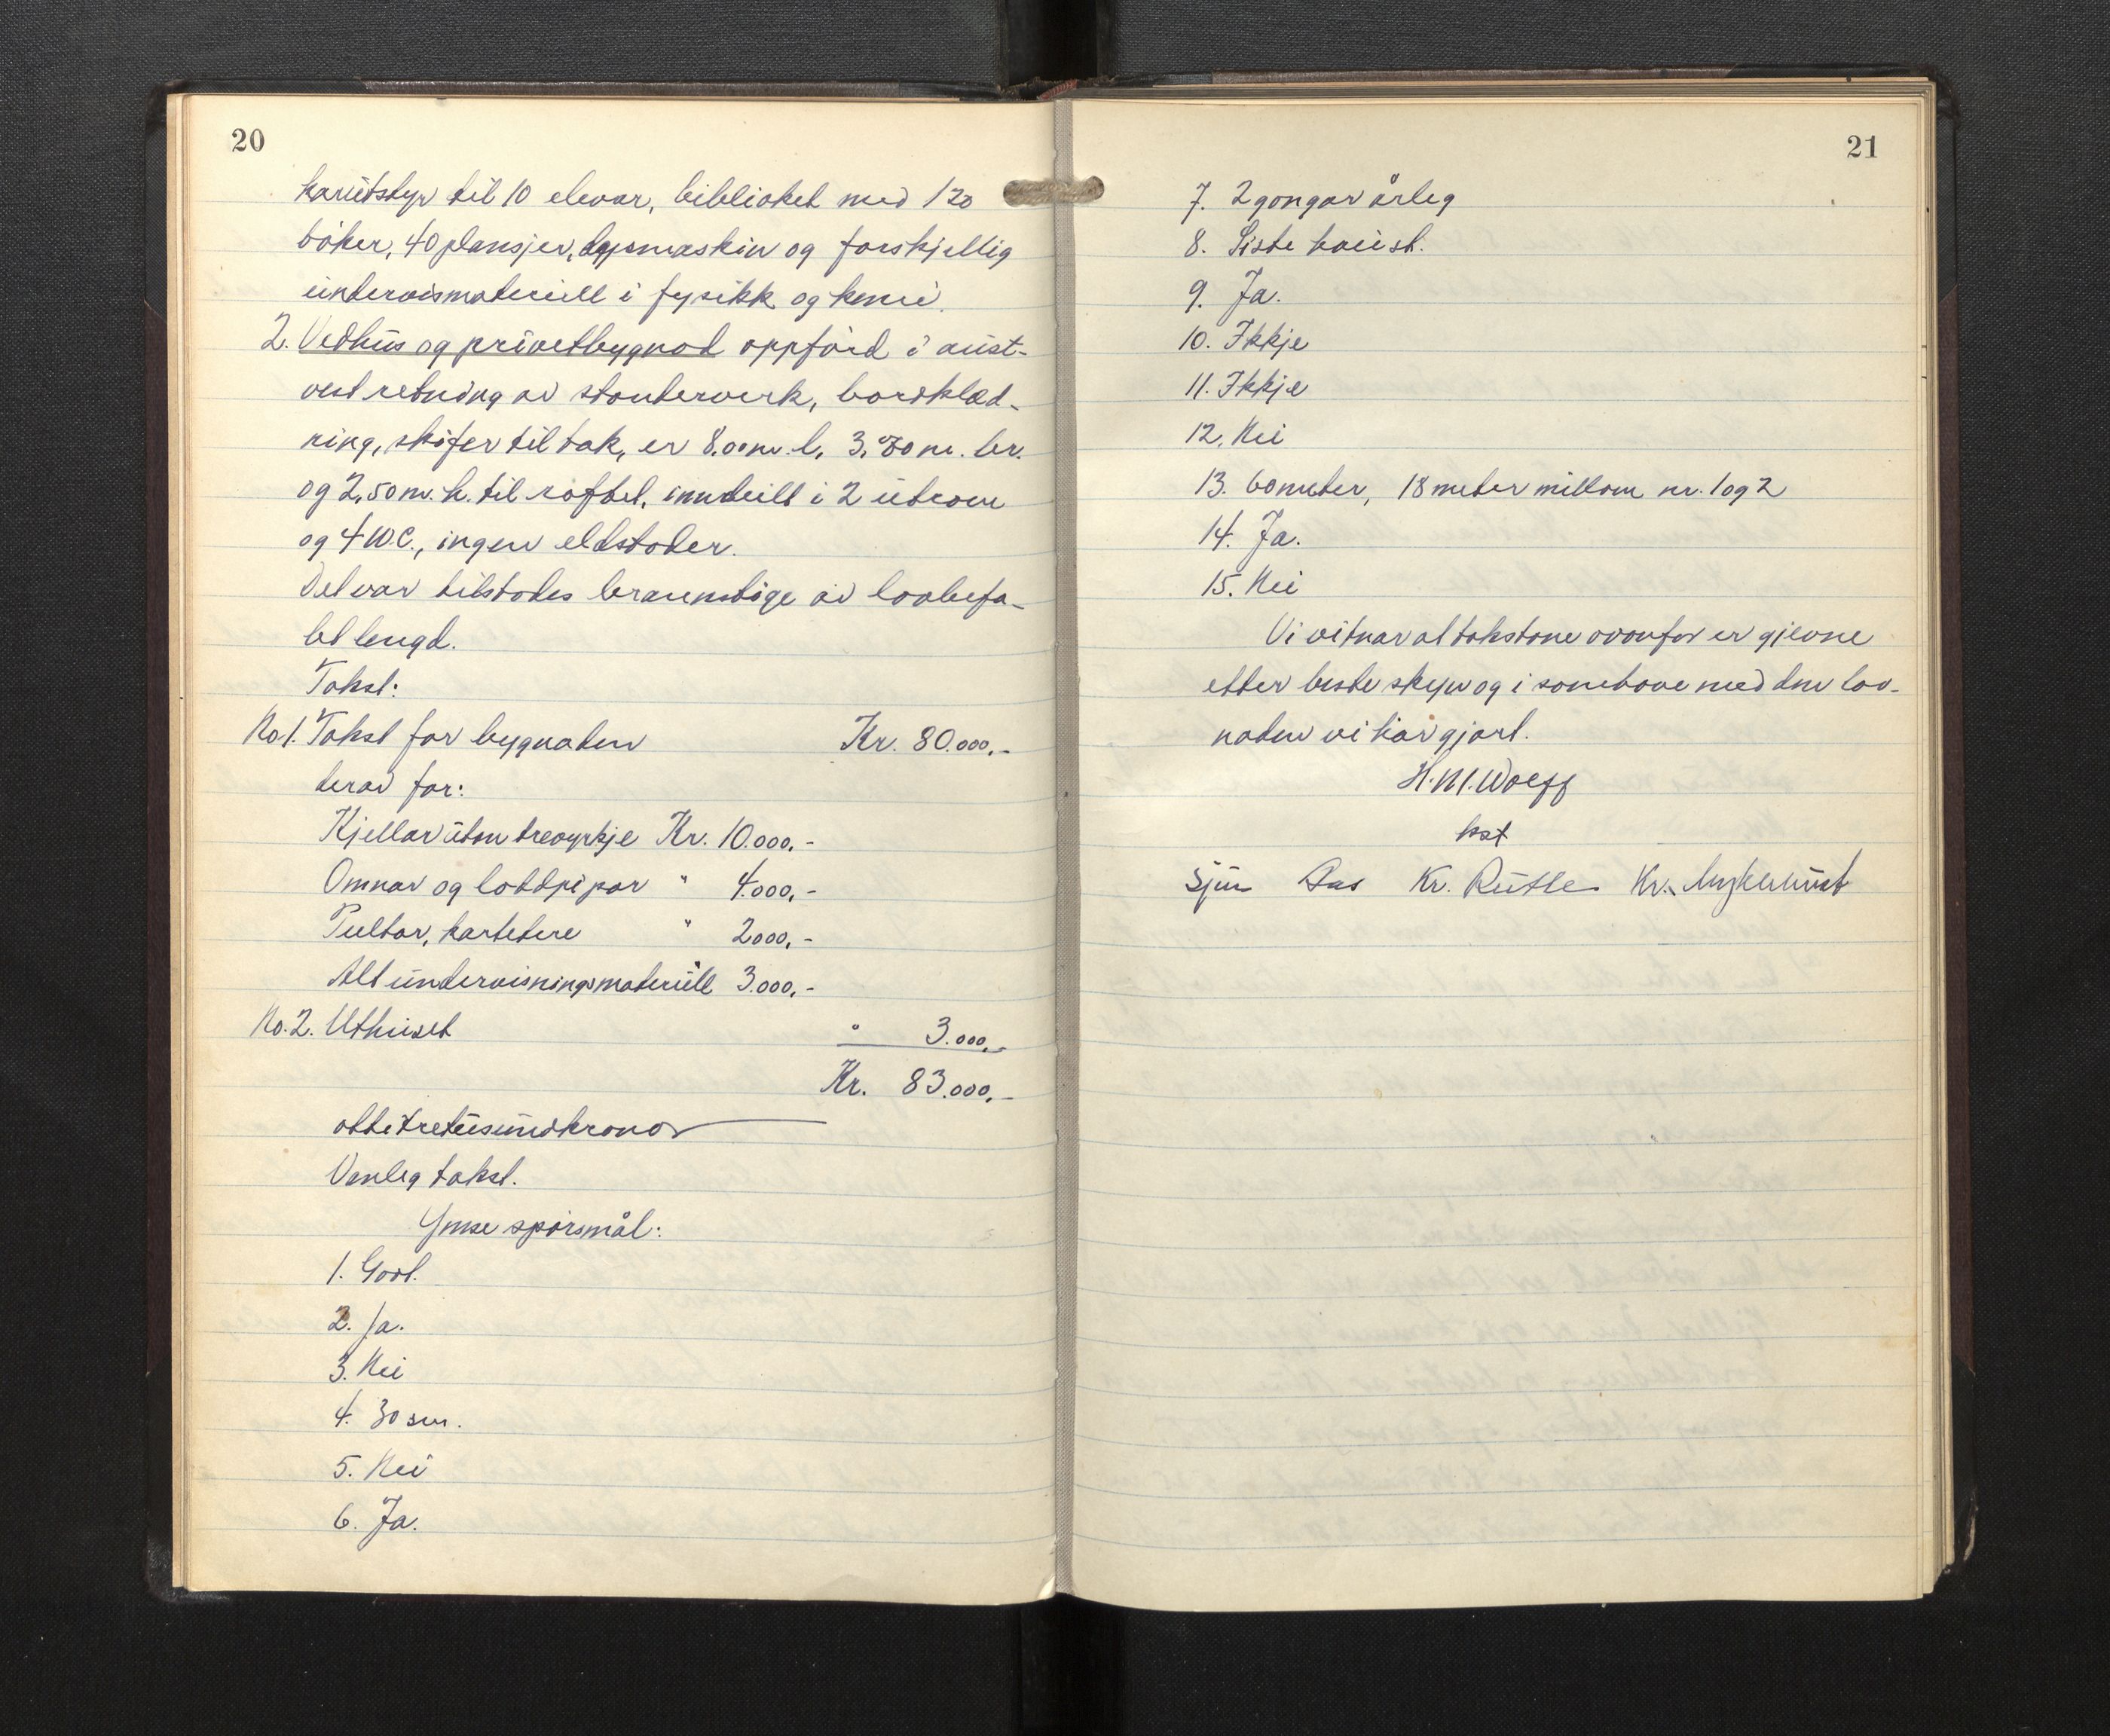 20
karutstyr til 10 elevar, bibliotek med 120
bøker, 40 plansjer, lysmaskin og forskjellig
undervismateriell i fysikk og kemi.
2. Vedhus og privetbygnad oppførd i aust-
vest retning av standerverk, bordklæd-
ning, skifer til tak, er 8.00 m. l. 3,80 m. br.
og 2,50 m. h. til raftet, inndeilt i 2 utrom
og 4 W.C., ingen eldstader.
Det var tilstades brannstige av lovbefa-
let lengd.
Takst:
No 1. Takst for bygnaden Kr. 80.000,-
derav for:
Kjellar utan treverkje Kr. 10.000,-
Omnar og loddpipar " 4.000,-
Pultar, kartetere " 2000,-
Alt undervisningsmateriell 3.000,-
No. 2. Uthuset " 3.000,-
Kr. 83.000,-
åttitretusundkronor
Vanleg takst.
Ymse spørsmål:
1. Godt.
2. Ja.
3. Nei
4. 30 sm.
5. Nei
6. Ja.
21
7. 2 gongar årleg
8. Siste haust.
9. Ja.
10. Ikkje
11. Ikkje
12. Nei
13. 60 meter, 18 meter millom nr. 1 og 2
14. Ja.
15. Nei
Vi vitnar at takstane ovanfor er gjevne
etter beste skyn og i samhøve med den lov-
naden vi har gjort.
H. M. Wolff
kst
Sjur Aas Kr. Rutle Kr.